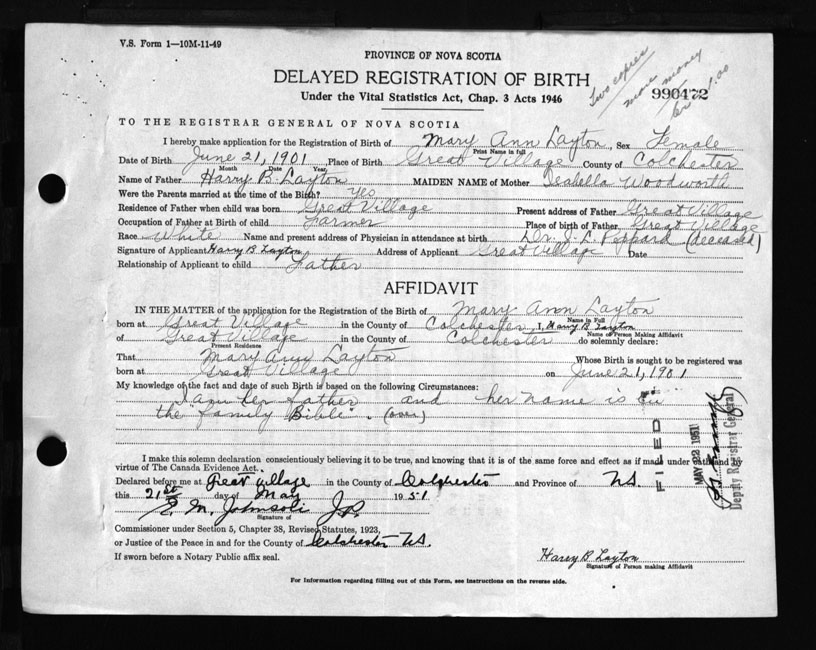 V.S. Form 1—10M-11-49
PROVINCE OF NOVA SCOTIA
DELAYED REGISTRATION OF BIRTH
Under the Vital Statistics Act, Chap. 3 Acts 1946
Two copies
more money
1.00
990472
TO THE REGISTRAR GENERAL OF NOVA SCOTIA
I hereby make application for the Registration of Birth of Mary Ann Layton, Sex Female
Print Name in full
Date of Birth June 21, 1901 Place of Birth Great Village County of Colchester
Month Date Year
Name of Father Harry B. Layton MAIDEN NAME of Mother Isabella Woodworth
Were the Parents married at the time of the Birth? Yes
Residence of Father when child was born Great Village Present address of Father Great Village
Occupation of Father at Birth of child Farmer Place of birth of Father Great Village
Race White Name and present address of Physician in attendance at birth Dr. J. L. Peppard (deceased)
Signature of Applicant Harry B Layton Address of Applicant Great Village Date
Relationship of Applicant to child Father
AFFIDAVIT
IN THE MATTER of the application for the Registration of the Birth of Mary Ann Layton
Name in Full
born at Great Village in the County of Colchester, I, Harry B Layton
Name of Person Making Affidavit
of Great Village in the County of Colchester do solemnly declare:
Present Residence
That Mary Ann Layton Whose Birth is sought to be registered was
born at Great Village on June 21, 1901
My knowledge of the fact and date of such Birth is based on the following Circumstances:
I am her father and her name is in
the "family Bible". (over)
I make this solemn declaration conscientiously believing it to be true, and knowing that it is of the same force and effect as if made under oath and by
virtue of The Canada Evidence Act.
Declared before me at Great Village in the County of Colchester and Province of N.S.
this 21st day of May 1951
E. M. Johnson J.P.
Signature of
Commissioner under Section 5, Chapter 38, Revised Statutes, 1923,
or Justice of the Peace in and for the County of Colchester N.S.
If sworn before a Notary Public affix seal.
Harry B Layton
Signature of Person making Affidavit
For Information regarding filling out of this Form, see Instructions on the reverse side.
FILED
MAY 22 1951
Deputy Registrar General